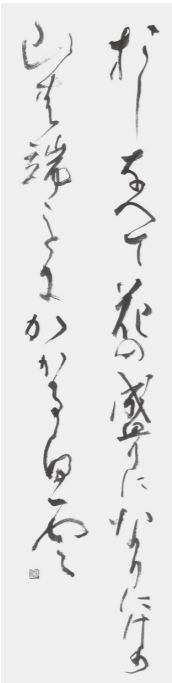 おしなへて花の盛りになりにけり
山の端ことにかかる白雲